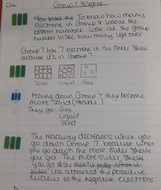 Group 7 Halogens
You take the To know how many
electrons in Group 7 look at the
bottom numbers. Look at the group
number to see how many left over
Group 7 has 7 electrons in the outer shell
because it's in Group 7
Moving down Group 7 they become
more solid
They go: Gas
Liquid
Solid
The reactivity decreases when you
go down Group 7 because when
you go down the more outer shells
you get. The more outer shells
you get
less attracted the positive
nucleus to the negative electrons